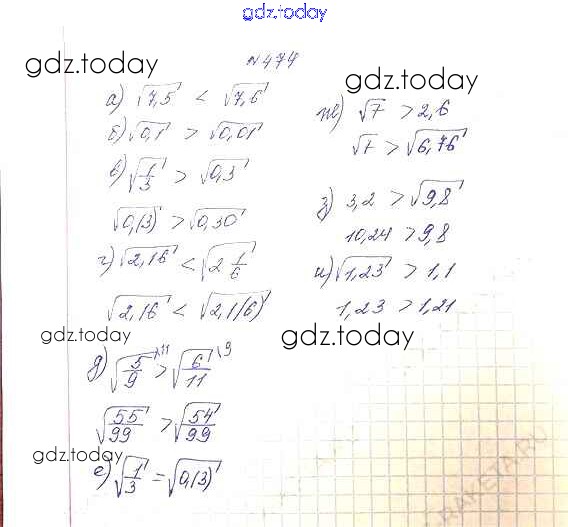 gdz.today
№474
gdz.today
а) √7,5 < √7,6
б) √0,1 > √0,01
в) √1/3 > √0,3
√0,(3) > √0,30
г) √2,16 < √2 1/6
√2,16 < √2,1(6)
gdz.today
д) √5/9 \11 > √6/11 \9
√55/99 > √54/99
gdz.today
е) √1/3 = √0,(3)
gdz.today
ж) √7 > 2,6
√7 > √6,76
з) 3,2 > √9,8
10,24 > 9,8
и) √1,23 > 1,1
1,23 > 1,21
gdz.today
RAKETA.RU